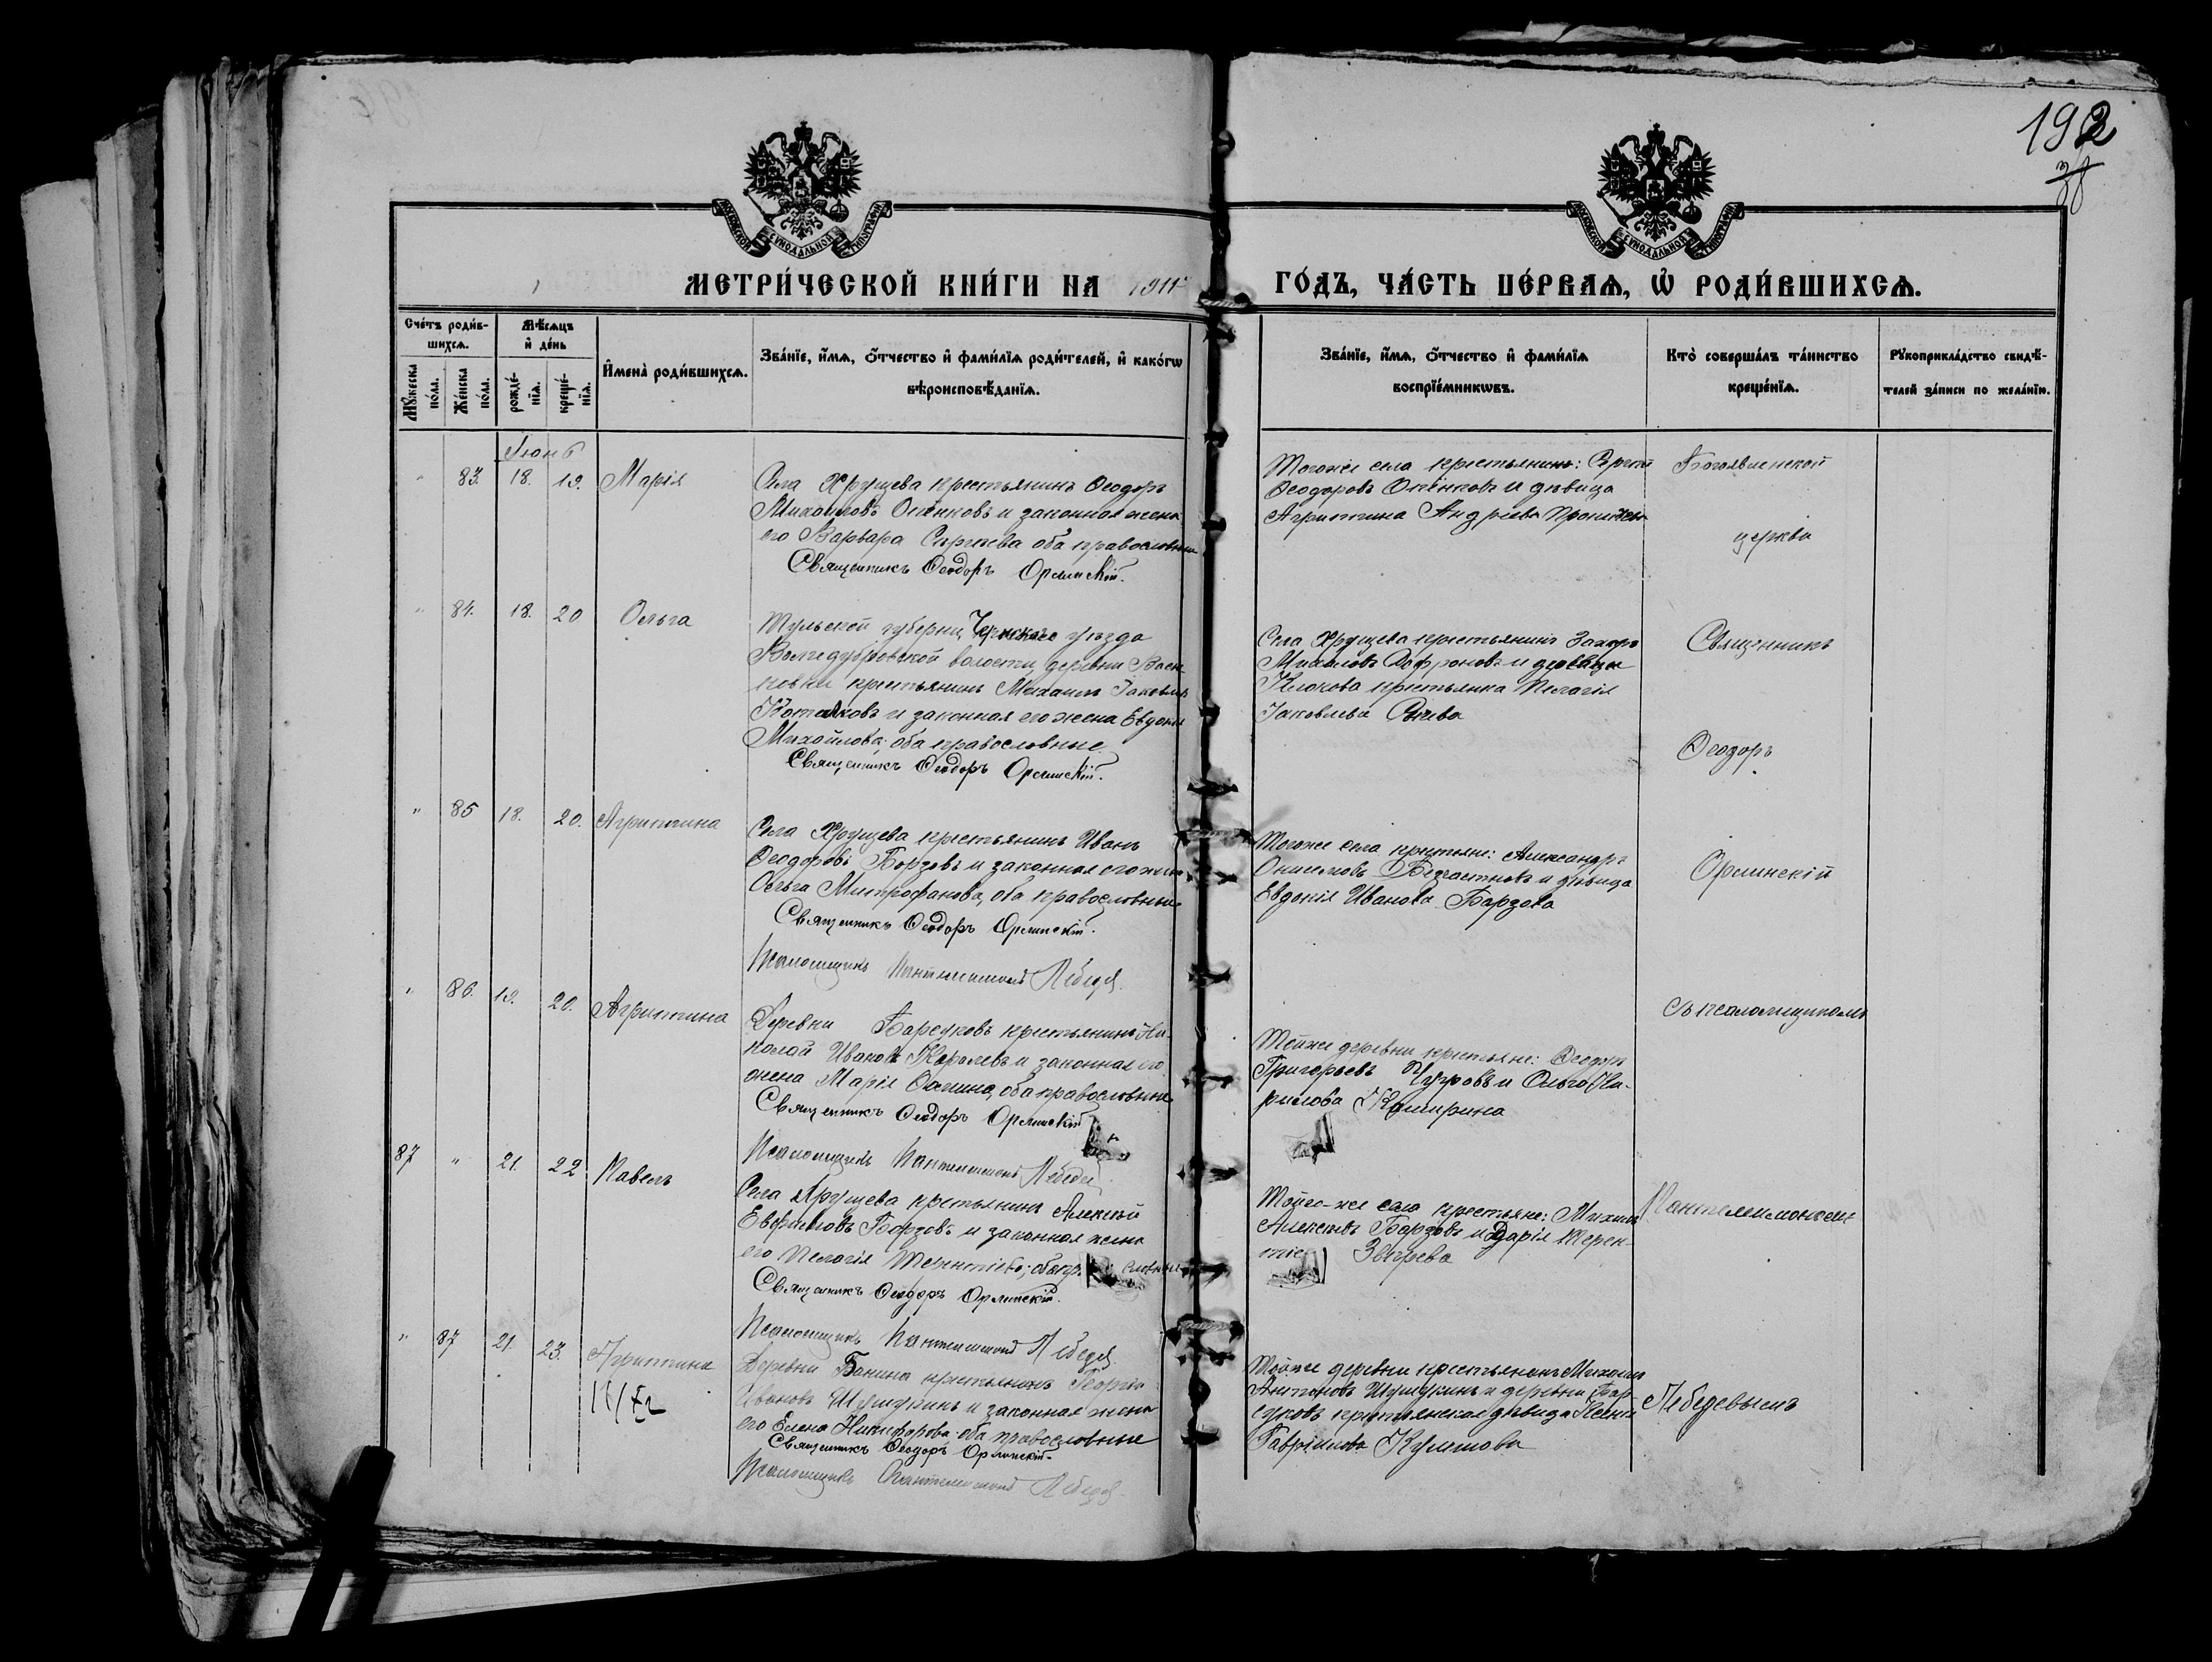 192
МЕТРИ́ЧЕСКОЙ КНИ́ГИ НА 1911 ГО́ДЪ, ЧА́СТЬ ПЕ́РВАѦ, Ѡ҆ РОДИ́ВШИХСѦ.
Сче́тъ роди́в-
шихсѧ.
Мꙋ́жеска по́ла.
Же́нска по́ла.
Мѣ́сѧцъ
и҆ де́нь
рожде́-
нїѧ.
креще́-
нїѧ.
И҆мена̀ роди́вшихсѧ.
Зва́нїе, и҆́мѧ, ѻ҆́тчество и҆ фами́лїѧ роди́телей, и҆ како́гѡ
вѣроисповѣ́данїѧ.
Зва́нїе, и҆́мѧ, ѻ҆́тчество и҆ фами́лїѧ
воспрїе́мникѡвъ.
Кто̀ соверша́лъ та́инство
креще́нїѧ.
Рꙋкоприкла́дство свидѣ́-
телей за́писи по жела́нїю.
Іюнь
" 83. 18. 19. Марія
Села Хрущева крестьянинъ Ѳеодоръ
Михаиловъ Опенковъ и законная жена
его Варвара Сергеева оба православные
Священникъ Ѳеодоръ Орлинскій.
Тогоже села крестьянинъ: Сергей
Ѳеодоровъ Опенковъ и девица
Агриппина Андреева
Богоявленской
церкви
" 84. 18. 20 Ольга
Тульской губерніи, Чернскаго уезда
волости, деревни
крестьянинъ Михаилъ Іаковлевъ
и законная его жена Евдокія
Михайлова; оба православные.
Священникъ Ѳеодоръ Орлинскій.
Села Хрущева крестьянинъ Захаръ
Михаиловъ и девица
крестьянка Пелагія
Іаковлева
Священникъ
Ѳеодоръ
" 85 18. 20. Агриппина
Села Хрущева крестьянинъ Иванъ
Ѳеодоровъ Борзовъ и законная его жена
Ольга Митрофанова, оба православные
Священникъ Ѳеодоръ Орлинскій.
Псаломщикъ Пантелеимонъ Лебедев.
Тогоже села крестьяне: Александръ
Онисимовъ и девица
Евдокія Иванова Барзова
Орлинскій
" 86. 19. 20. Агриппина
Деревни Барсуковъ крестьянинъ Ни-
колай Ивановъ Королевъ и законная его
жена Марія, оба православные
Священникъ Ѳеодоръ Орлинскій
Псаломщикъ Пантелеимонъ Лебедев
Тойже деревни крестьяне: Ѳеодоръ
Григорьевъ и Ольга Ки-
рилова Каширина
съ псаломщикомъ
87 " 21. 22 Павелъ
Села Хрущева крестьянинъ Алексей
Евфимовъ Борзовъ и законная жена
его Пелагія Терентіева; оба пр славные
Священникъ Ѳеодоръ Орлинскій.
Псаломщикъ Пантелеимонъ Лебедев.
Того-же села крестьяне: Михаилъ
Алексеевъ Борзовъ и Дарія Терен-
тіе Зверева
Пантелеимономъ
" 87 21. 23. Агриппина
Деревни Банина крестьянинъ Георгій
Ивановъ Шушукинъ и законная жена
его Елена Никифорова оба православные
Священникъ Ѳеодоръ Орлинскій.
Псаломщикъ Пантелеимонъ Лебедев.
Тойже деревни крестьянинъ Михаилъ
Антоновъ Шушукинъ и деревни Бар-
суковъ крестьянская девица Ксенія
Гавріилова
Лебедевымъ